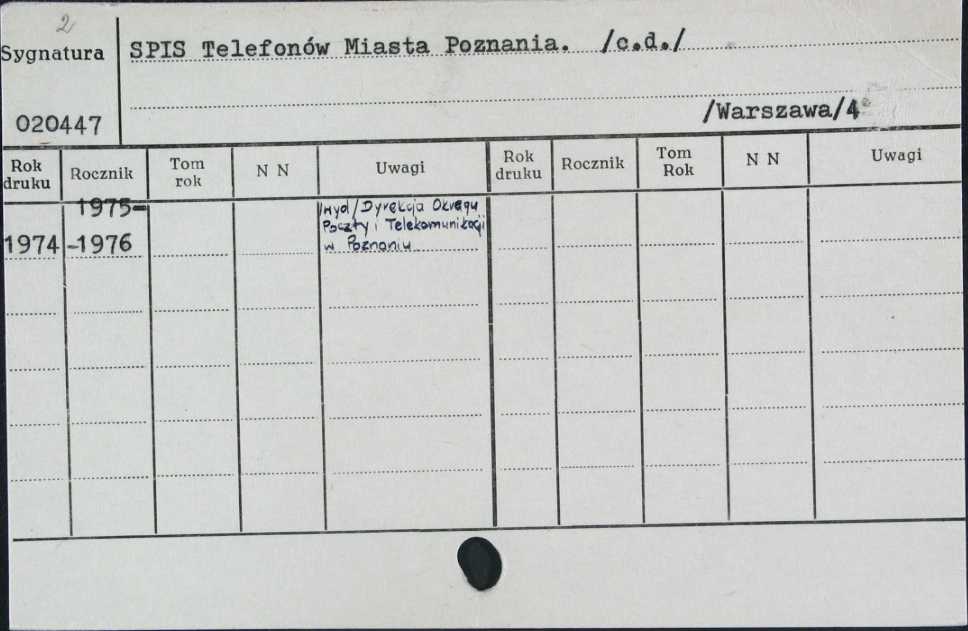 2
Sygnatura
SPIS Telefonów Miasta Poznania. /c.d./
020447
/Warszawa/4°
Rok druku Rocznik Tom rok N N Uwagi Rok druku Rocznik Tom Rok N N Uwagi
1975=
1974 -1976
/Wyd/ Dyrekcja Okręgu
Poczty i Telekomunikacji
w Poznaniu